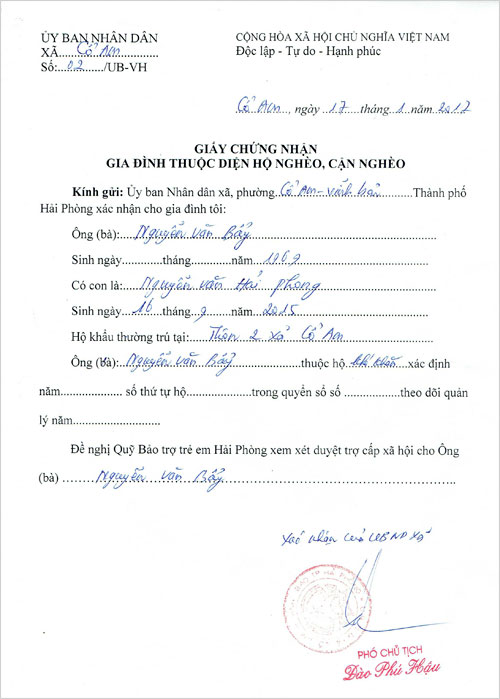 ỦY BAN NHÂN DÂN
XÃ....Cổ Am............
Số:....02....../UB-VH
CỘNG HÒA XÃ HỘI CHỦ NGHĨA VIỆT NAM
Độc lập - Tự do - Hạnh phúc
Cổ Am..., ngày 17 tháng 1 năm 2017
GIẤY CHỨNG NHẬN
GIA ĐÌNH THUỘC DIỆN HỘ NGHÈO, CẬN NGHÈO
Kính gửi: Ủy ban Nhân dân xã, phường Cổ Am - Vĩnh bảo Thành phố
Hải Phòng xác nhận cho gia đình tôi:
Ông (bà):....Nguyễn Văn Bẩy
Sinh ngày............tháng............năm....1969
Có con là:....Nguyễn Văn Hải Phong
Sinh ngày....16....tháng...9....năm...2015
Hộ khẩu thường trú tại:....Thôn 2 xã Cổ Am
Ông (bà):Nguyễn Văn Bẩy..........thuộc hộ khó khăn xác định
năm..................... số thứ tự hộ.....................trong quyển sổ số ..................theo dõi quản
lý năm............................
Đề nghị Quỹ Bảo trợ trẻ em Hải Phòng xem xét duyệt trợ cấp xã hội cho Ông
(bà) .........Nguyễn Văn Bẩy
Xác nhận của UBND xã
PHÓ CHỦ TỊCH
Đào Phú Hậu